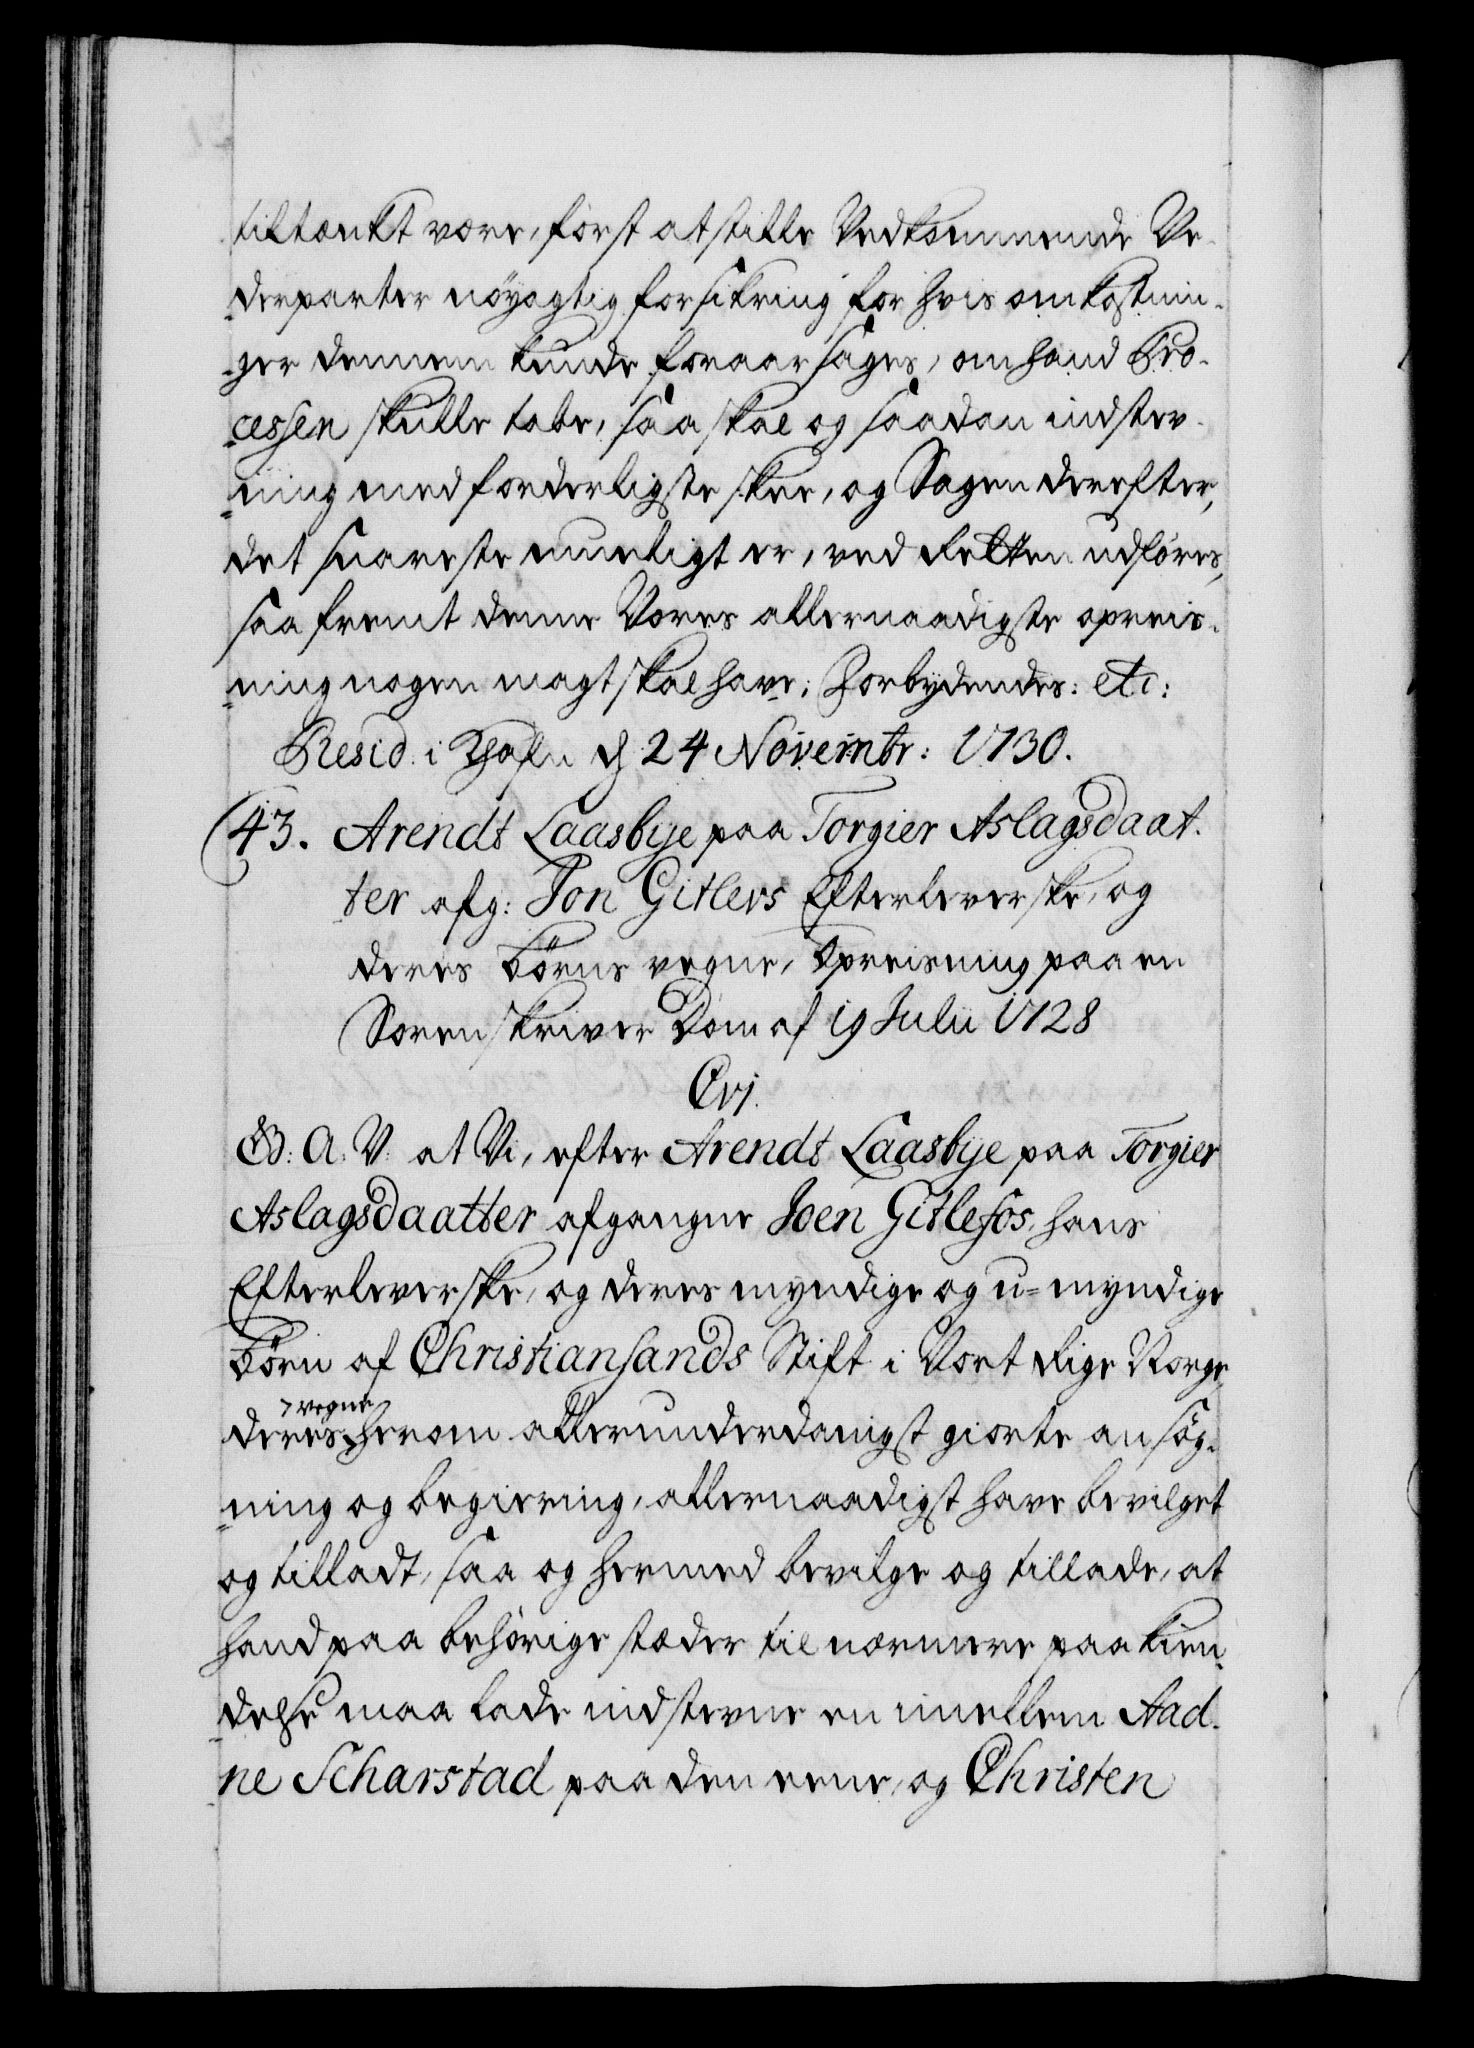 tiltænkt være, først at stille Vedkommende Ve-
derparter nøyagtig forsikring for hvis omkostnin-
ger dennem kunde foraarsages, om hand Pro-
cessen skulle tabe, saa skal og saadan indstev-
ning med forderligste skee, og Sagen derefter,
det snareste mueligt er, ved Retten udføres,
saa fremt denne Vores allernaadigste opreis-
ning nogen magt skal have; Forbydendes: etc:
Resid. i Khafn d 24 Novembr: 1730.
43. Arendt Laasbye paa Torgier Aslagsdaat-
ter afg: Jon Gitlevs Efterleverske, og
deres Børns vegne, Opreisning paa en
Sorenskriver Dom af 19 Julii 1728
Cvj.
G: A. V: at Vi, efter Arendt Laasbye paa Torgier
Aslagsdaatter afgangne Joen Gitlefsøs, hans
Efterleverske, og deres myndige og u-myndige
børn af Christiansands Stift i Vort Rige Norge
deres vegne herom allerunderdanigst giorte ansøg-
ning og begiering, allernaadigst have bevilget
og tilladt, saa og hermed bevilge og tillade, at
hand paa behørige stæder til nærmere paakien-
delse maa lade indstevne en imellem Aad-
ne Scharstad paa den eene, og Christen